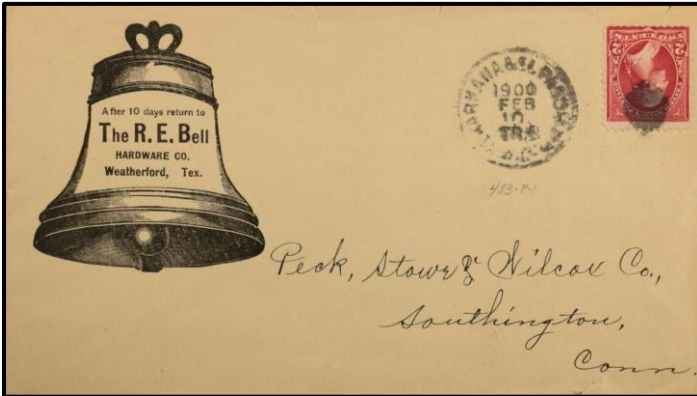 After 10 days return to
The R. E. Bell
HARDWARE CO.
Weatherford, Tex.
1900
FEB
10
TR
Peck, Stowe & Wilcox Co.,
Southington,
Conn.